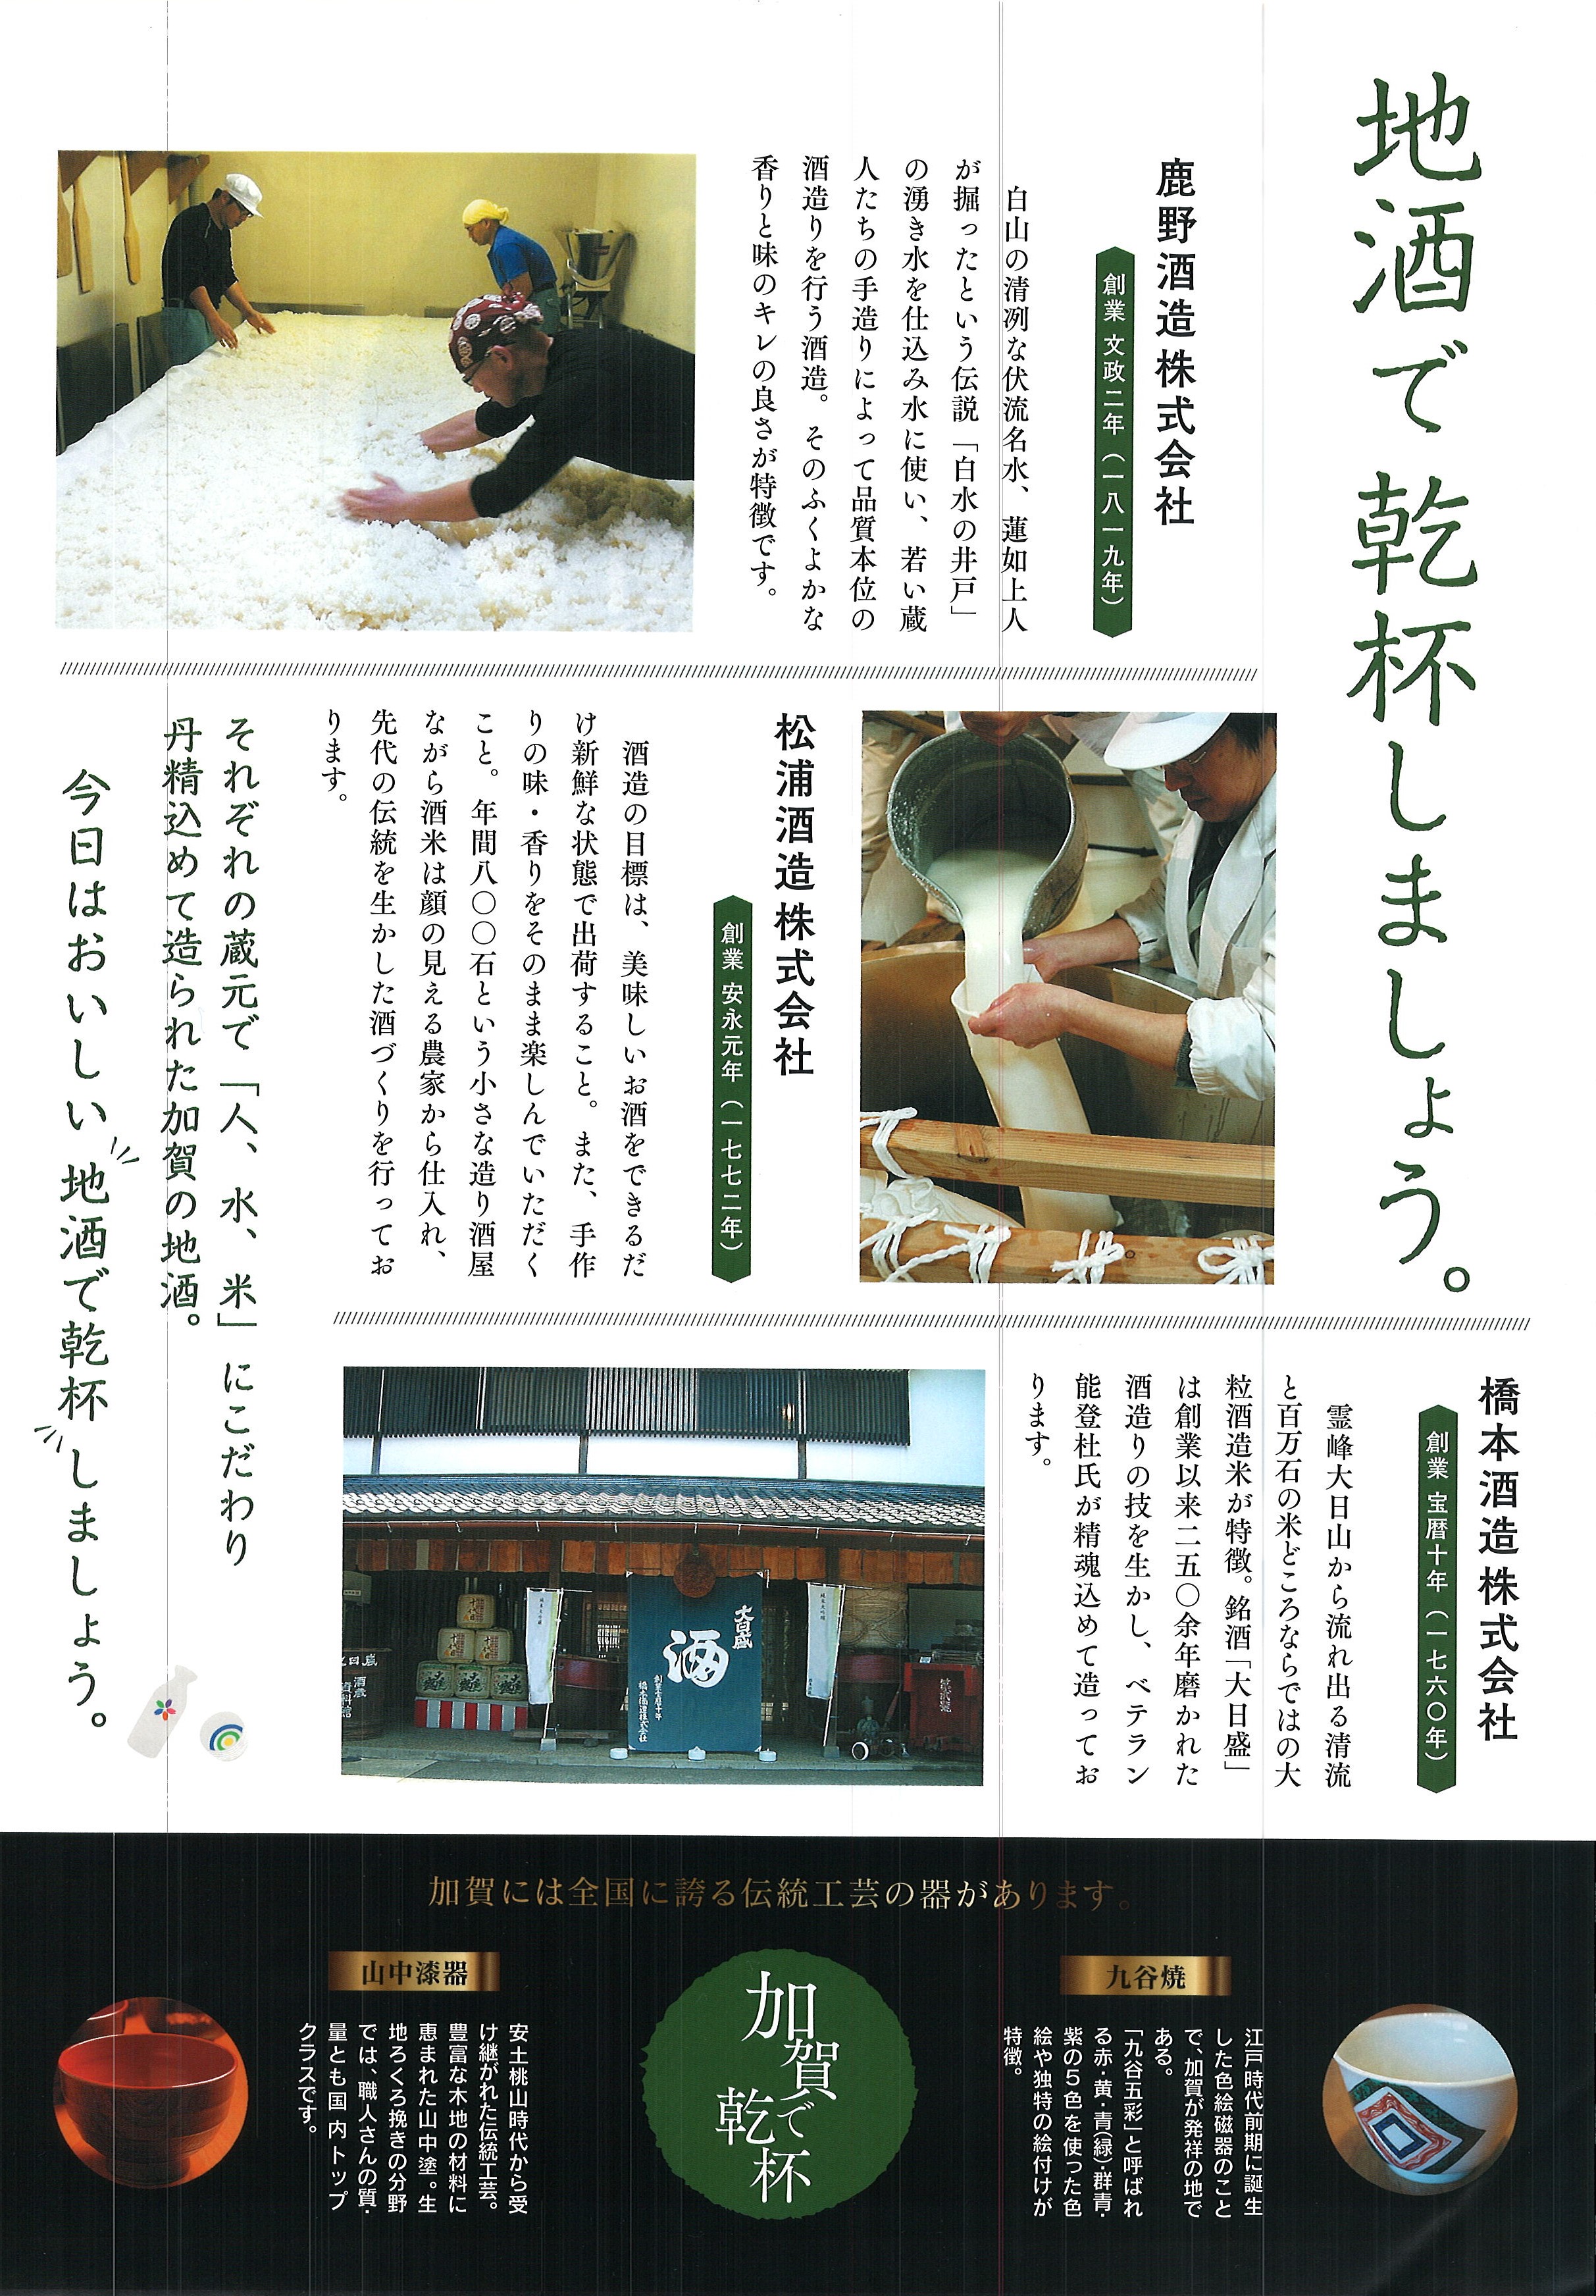 地酒で乾杯しましょう。
鹿野酒造株式会社
創業 文政二年（一八一九年）
白山の清冽な伏流名水、蓮如上人
が掘ったという伝説「白水の井戸」
の湧き水を仕込み水に使い、若い蔵
人たちの手造りによって品質本位の
酒造りを行う酒造。そのふくよかな
香りと味のキレの良さが特徴です。
松浦酒造株式会社
創業 安永元年（一七七二年）
酒造の目標は、美味しいお酒をできるだ
け新鮮な状態で出荷すること。また、手作
りの味・香りをそのまま楽しんでいただく
こと。年間八〇〇石という小さな造り酒屋
ながら酒米は顔の見える農家から仕入れ、
先代の伝統を生かした酒づくりを行ってお
ります。
橋本酒造株式会社
創業 宝暦十年（一七六〇年）
霊峰大日山から流れ出る清流
と百万石の米どころならではの大
粒酒造米が特徴。銘酒「大日盛」
は創業以来二五〇余年磨かれた
酒造りの技を生かし、ベテラン
能登杜氏が精魂込めて造ってお
ります。
大日盛
酒
創業宝暦十年
橋本酒造株式会社
それぞれの蔵元で「人、水、米」にこだわり
丹精込めて造られた加賀の地酒。
今日はおいしい地酒で乾杯しましょう。
加賀には全国に誇る伝統工芸の器があります。
九谷焼
江戸時代前期に誕生
した色絵磁器のこと
で、加賀が発祥の地で
ある。
「九谷五彩」と呼ばれ
る赤・黄・青(緑)・群青・
紫の5色を使った色
絵や独特の絵付けが
特徴。
加賀で乾杯
山中漆器
安土桃山時代から受
け継がれた伝統工芸。
豊富な木地の材料に
恵まれた山中塗。生
地ろくろ挽きの分野
では、職人さんの質・
量とも国内トップ
クラスです。